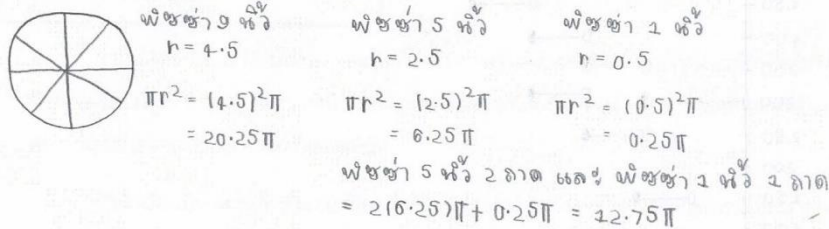 พิซซ่า 9 นิ้ว
r = 4.5
πr² = (4.5)²π
= 20.25π
พิซซ่า 5 นิ้ว
r = 2.5
πr² = (2.5)²π
= 6.25π
พิซซ่า 1 นิ้ว
r = 0.5
πr² = (0.5)²π
= 0.25π
พิซซ่า 5 นิ้ว 2 ถาด และ พิซซ่า 1 นิ้ว 1 ถาด
= 2(6.25)π + 0.25π = 12.75π